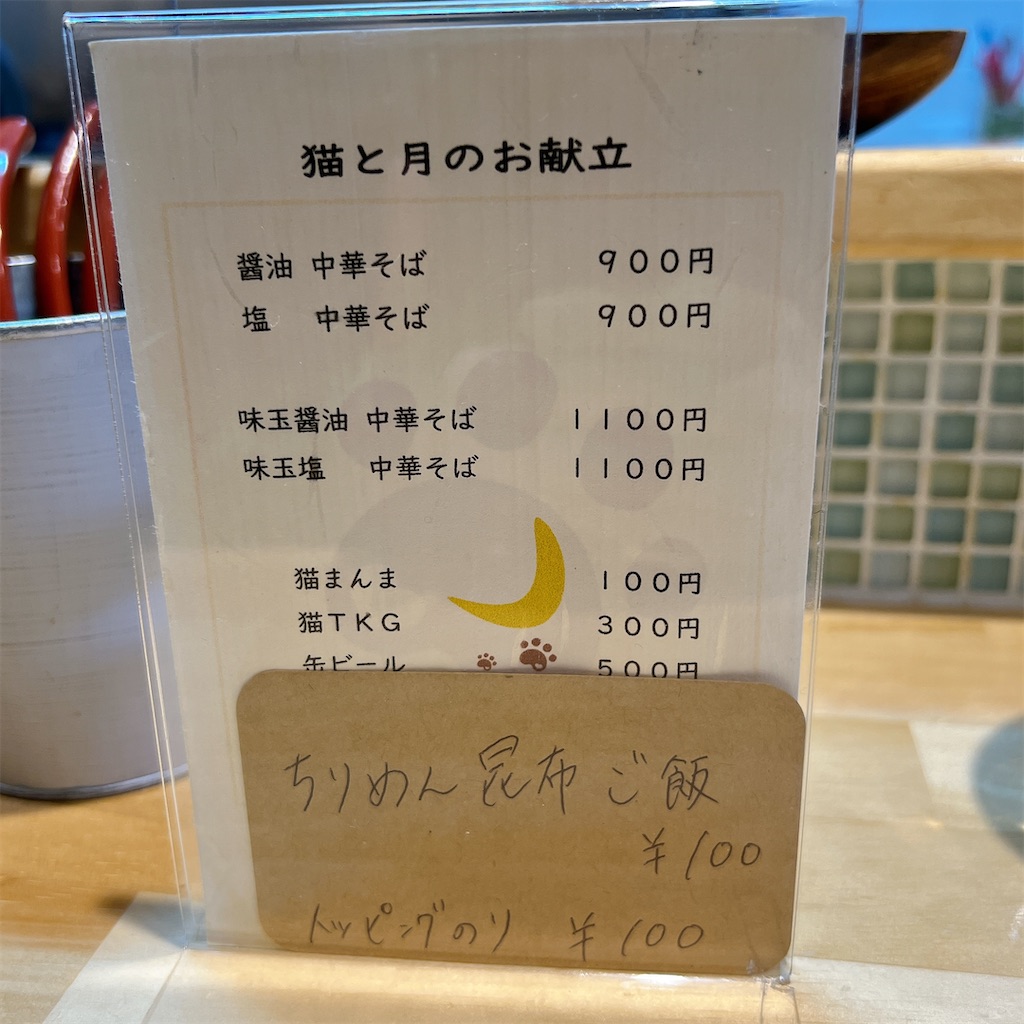 猫と月のお献立
醤油 中華そば ９００円
塩 中華そば ９００円
味玉醤油 中華そば １１００円
味玉塩 中華そば １１００円
猫まんま １００円
猫ＴＫＧ ３００円
缶ビール ５００円
ちりめん昆布ご飯
¥100
トッピングのり ¥100